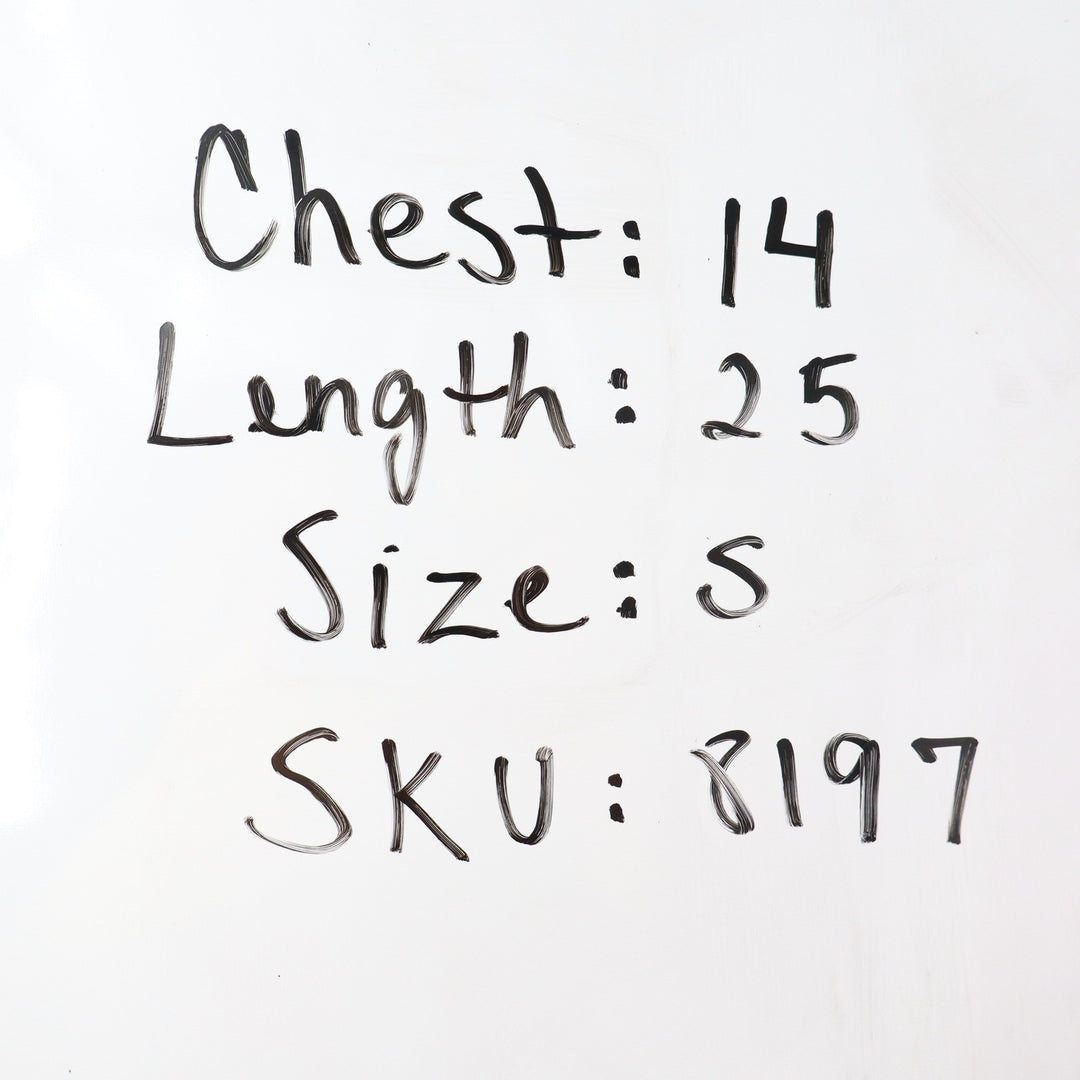 Chest: 14
Length: 25
Size: S
SKU: 8197